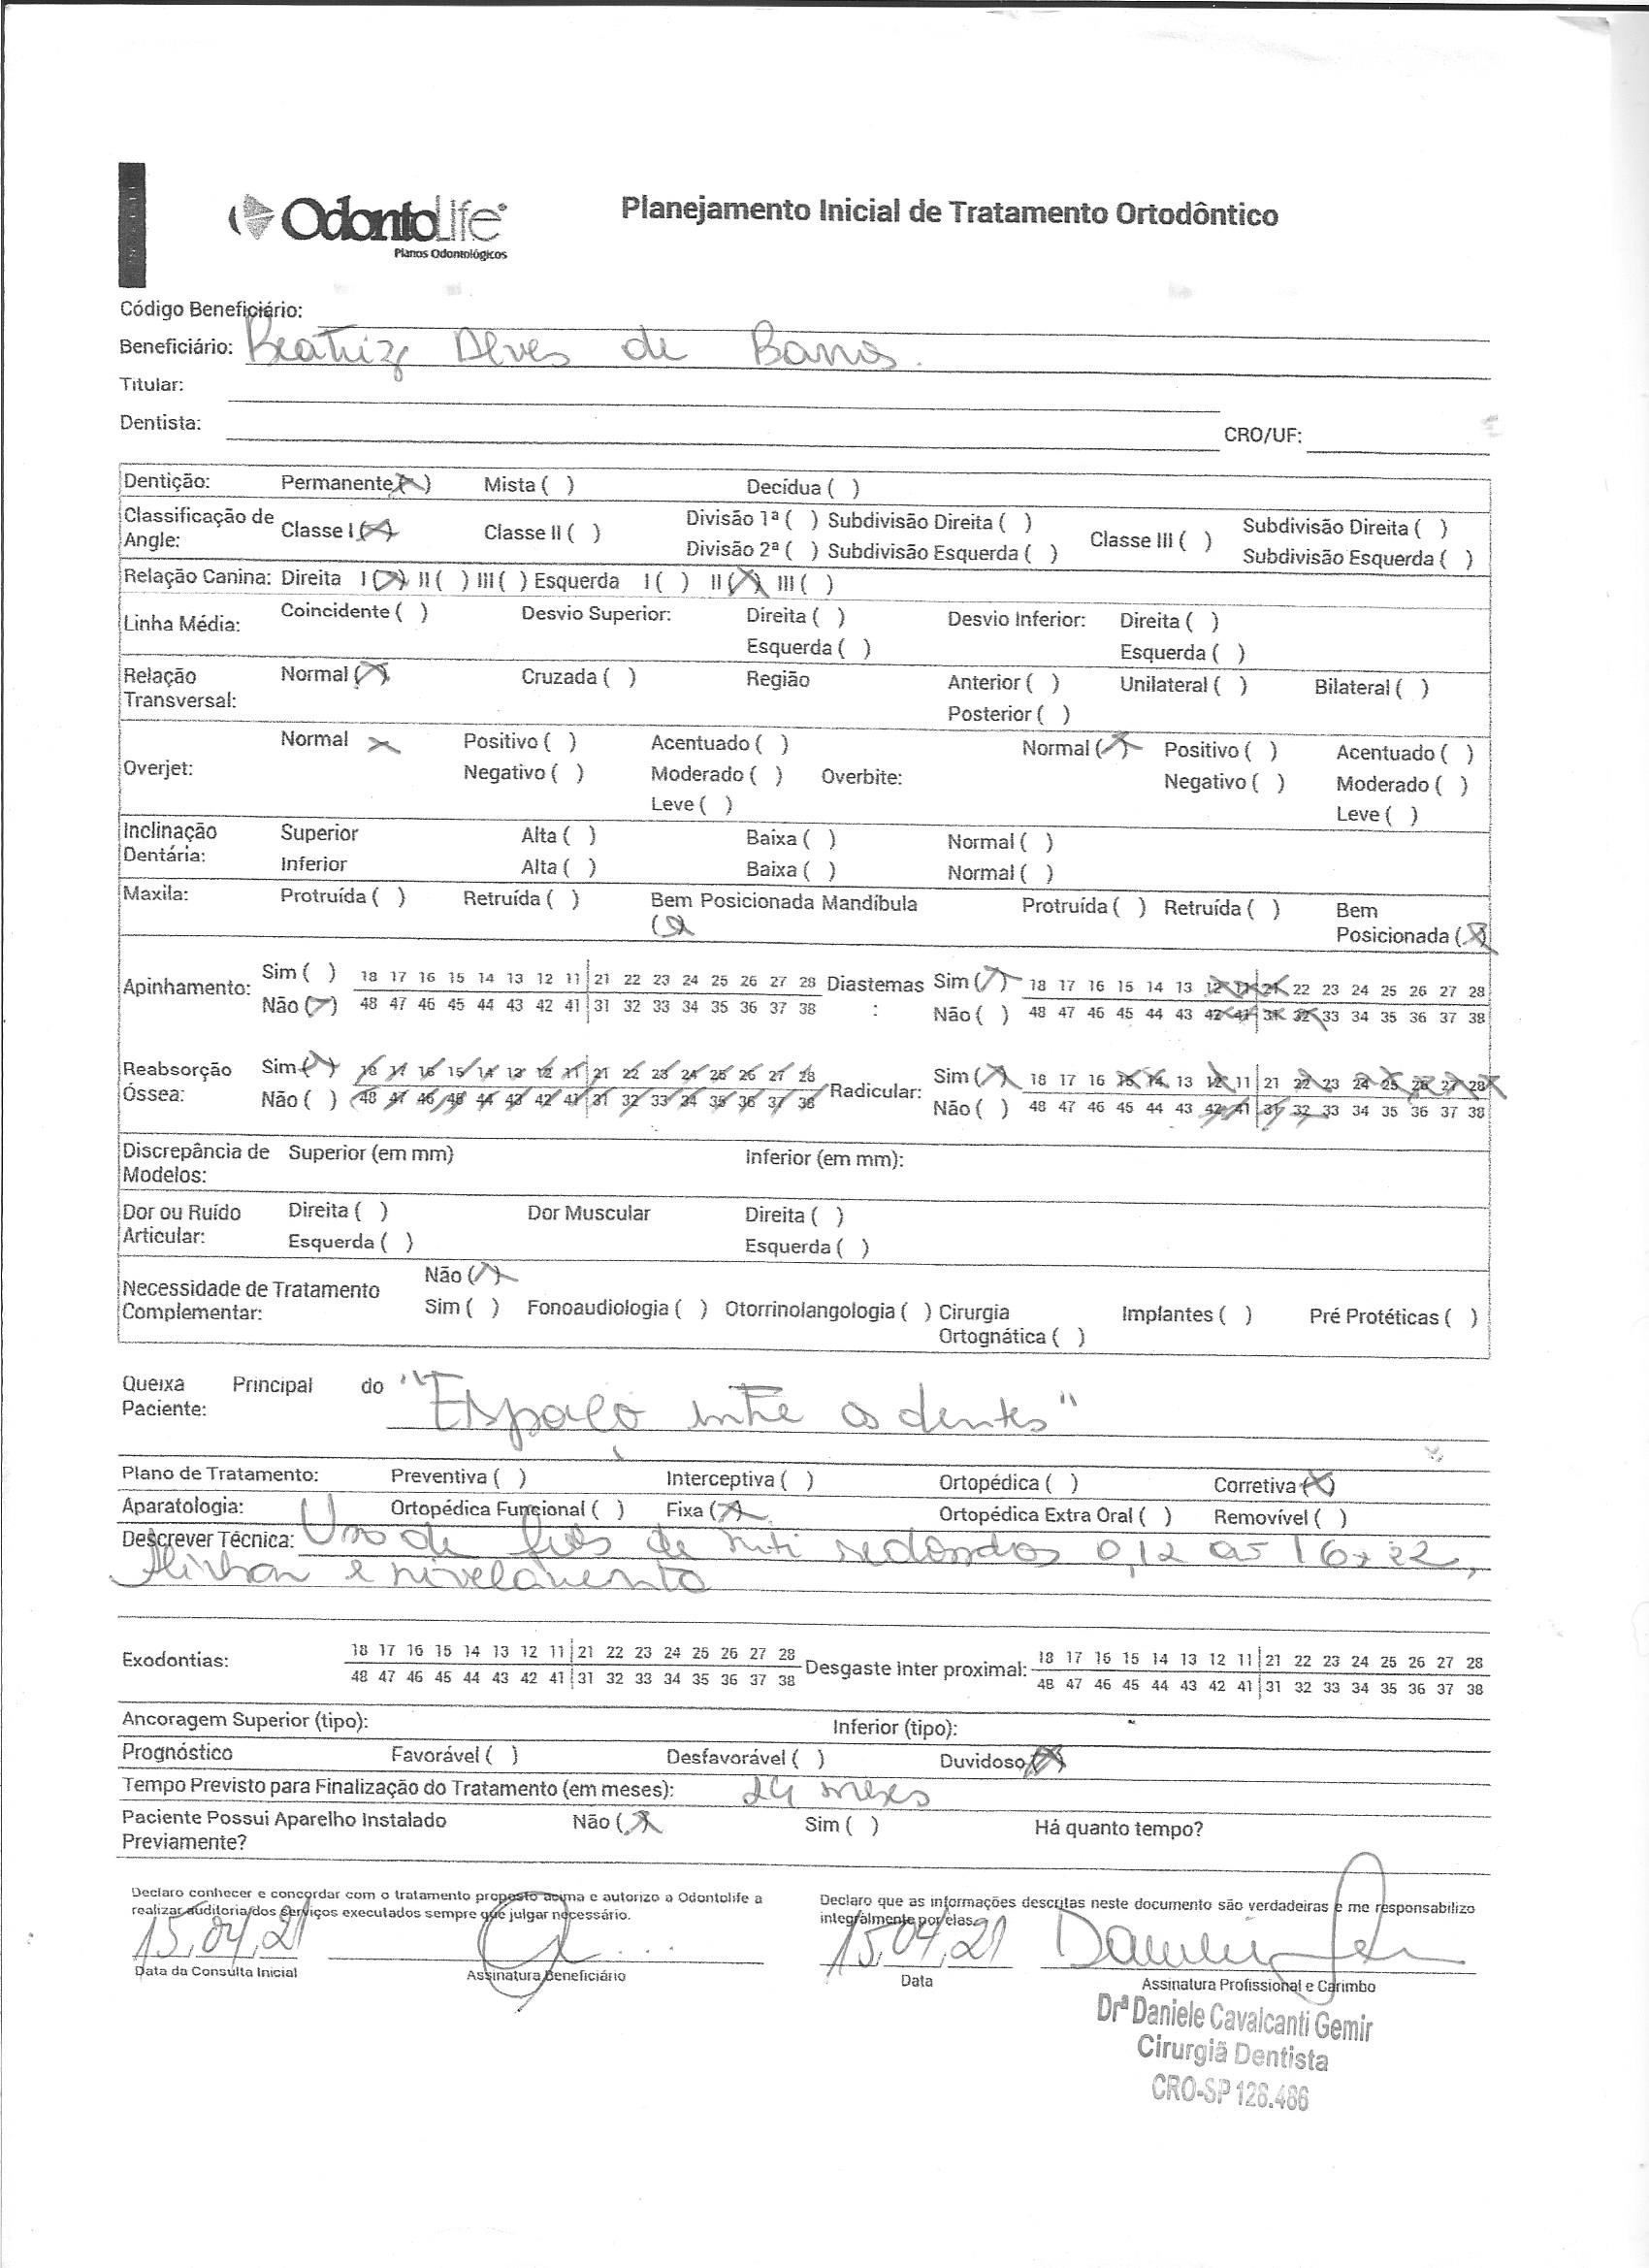 OdontoLife
Planos Odontológicos
Planejamento Inicial de Tratamento Ortodôntico
Código Beneficiário:
Beneficiário: Beatriz Alves de Barros.
Titular:
Dentista:
CRO/UF:
Dentição: Permanente (X) Mista ( ) Decídua ( )
Classificação de Angle: Classe I (X) Classe II ( ) Divisão 1ª ( ) Subdivisão Direita ( ) Classe III ( ) Subdivisão Direita ( )
Divisão 2ª ( ) Subdivisão Esquerda ( ) Subdivisão Esquerda ( )
Relação Canina: Direita I (X) II ( ) III ( ) Esquerda I ( ) II (X) III ( )
Linha Média: Coincidente ( ) Desvio Superior: Direita ( ) Desvio Inferior: Direita ( )
Esquerda ( ) Esquerda ( )
Relação Transversal: Normal (X) Cruzada ( ) Região Anterior ( ) Unilateral ( ) Bilateral ( )
Posterior ( )
Overjet: Normal X Positivo ( ) Acentuado ( ) Overbite: Normal (X) Positivo ( ) Acentuado ( )
Negativo ( ) Moderado ( ) Negativo ( ) Moderado ( )
Leve ( ) Leve ( )
Inclinação Dentária: Superior Alta ( ) Baixa ( ) Normal ( )
Inferior Alta ( ) Baixa ( ) Normal ( )
Maxila: Protruída ( ) Retruída ( ) Bem Posicionada (X) Mandíbula Protruída ( ) Retruída ( ) Bem Posicionada (X)
Apinhamento: Sim ( ) 18 17 16 15 14 13 12 11 21 22 23 24 25 26 27 28 Diastemas: Sim (X) 18 17 16 15 14 13 12 11 21 22 23 24 25 26 27 28
Não (X) 48 47 46 45 44 43 42 41 31 32 33 34 35 36 37 38 Não ( ) 48 47 46 45 44 43 42 41 31 32 33 34 35 36 37 38
Reabsorção Óssea: Sim (X) 18 17 16 15 14 13 12 11 21 22 23 24 25 26 27 28 Radicular: Sim (X) 18 17 16 15 14 13 12 11 21 22 23 24 25 26 27 28
Não ( ) 48 47 46 45 44 43 42 41 31 32 33 34 35 36 37 38 Não ( ) 48 47 46 45 44 43 42 41 31 32 33 34 35 36 37 38
Discrepância de Modelos: Superior (em mm) Inferior (em mm):
Dor ou Ruído Articular: Direita ( ) Dor Muscular Direita ( )
Esquerda ( ) Esquerda ( )
Necessidade de Tratamento Complementar: Não (X)
Sim ( ) Fonoaudiologia ( ) Otorrinolangologia ( ) Cirurgia Ortognática ( ) Implantes ( ) Pré Protéticas ( )
Queixa Principal do Paciente: "Espaço entre os dentes"
Plano de Tratamento: Preventiva ( ) Interceptiva ( ) Ortopédica ( ) Corretiva (X)
Aparatologia: Ortopédica Funcional ( ) Fixa (X) Ortopédica Extra Oral ( ) Removível ( )
Descrever Técnica: Uso de fios de niti redondos 0,12 ao 16x22,
Alinhar e nivelamento
Exodontias: 18 17 16 15 14 13 12 11 21 22 23 24 25 26 27 28 Desgaste Inter proximal: 18 17 16 15 14 13 12 11 21 22 23 24 25 26 27 28
48 47 46 45 44 43 42 41 31 32 33 34 35 36 37 38 48 47 46 45 44 43 42 41 31 32 33 34 35 36 37 38
Ancoragem Superior (tipo): Inferior (tipo):
Prognóstico Favorável ( ) Desfavorável ( ) Duvidoso (X)
Tempo Previsto para Finalização do Tratamento (em meses): 24 meses
Paciente Possui Aparelho Instalado Previamente? Não (X) Sim ( ) Há quanto tempo?
Declaro conhecer e concordar com o tratamento proposto acima e autorizo a Odontolife a
realizar auditoria dos serviços executados sempre que julgar necessário.
Declaro que as informações descritas neste documento são verdadeiras e me responsabilizo
integralmente por elas.
15,04,21
Data da Consulta Inicial
Assinatura Beneficiário
15,04,21
Data
Assinatura Profissional e Carimbo
Drª Daniele Cavalcanti Gemir
Cirurgiã Dentista
CRO-SP 126.486